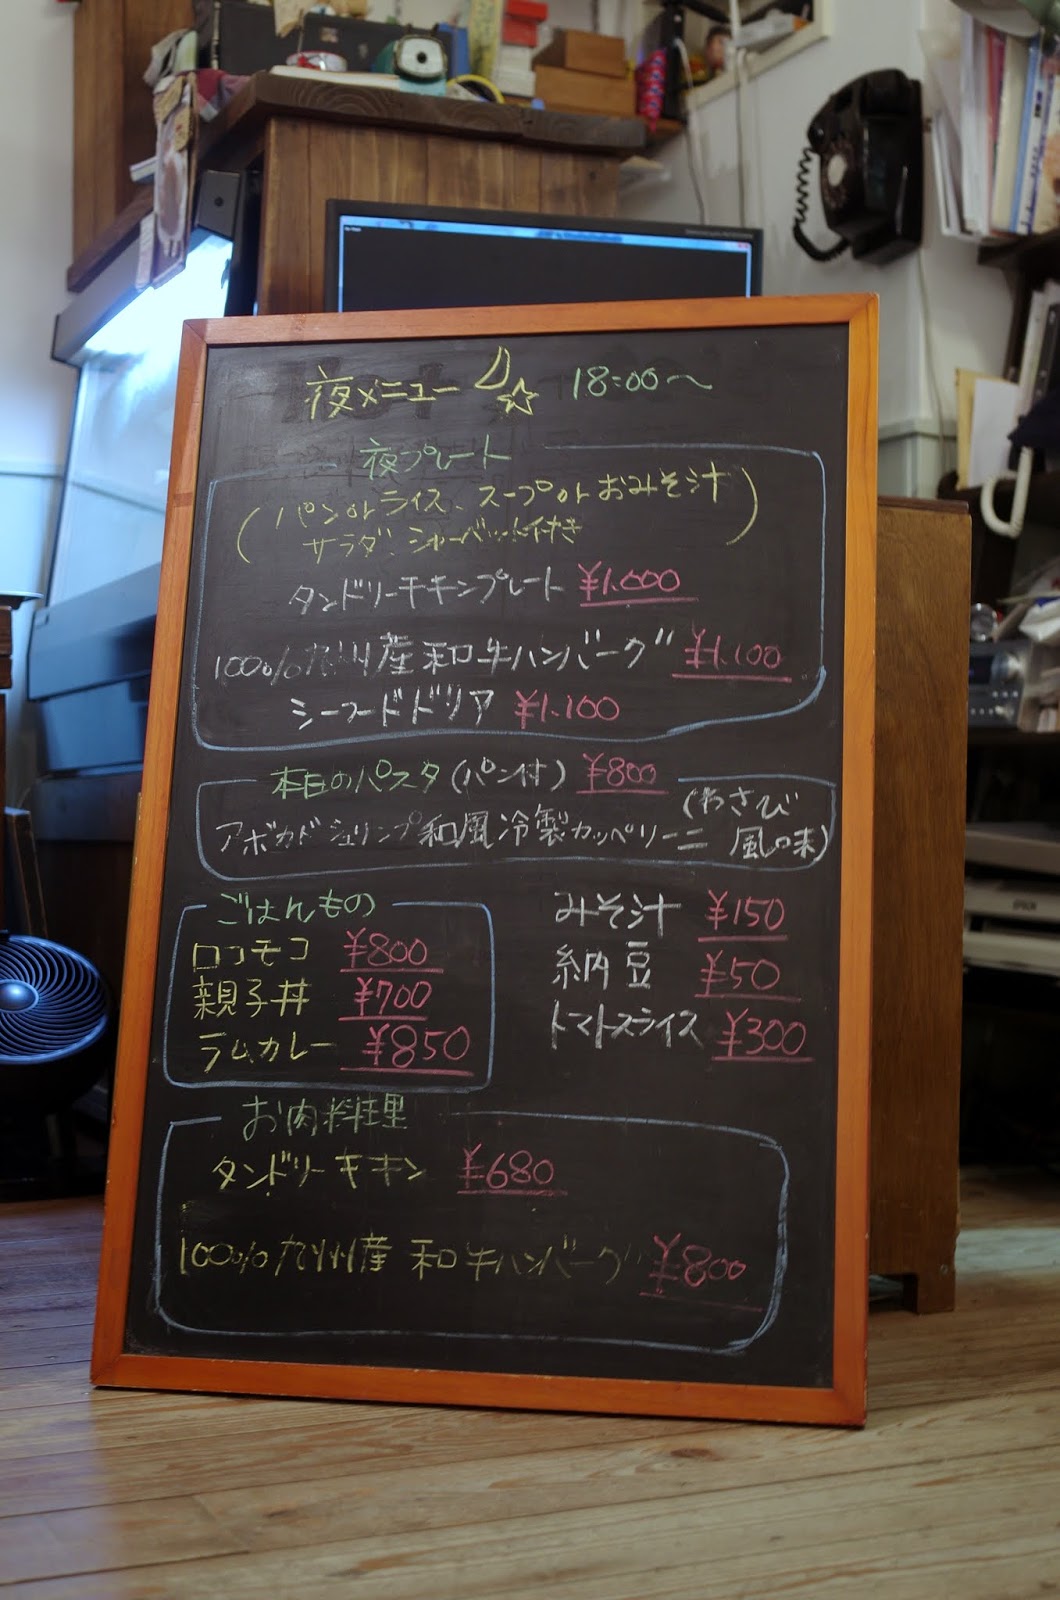 夜メニュー 18:00〜
夜プレート
(パンorライス、スープorおみそ汁
サラダ、シャーベット付き)
タンドリーチキンプレート ¥1.000
100%九州産和牛ハンバーグ ¥1.100
シーフードドリア ¥1.100
本日のパスタ(パン付) ¥800
アボカドシュリンプ和風冷製カッペリーニ (わさび風味)
ごはんもの
ロコモコ ¥800
親子丼 ¥700
ラムカレー ¥850
みそ汁 ¥150
納豆 ¥50
トマトスライス ¥300
お肉料理
タンドリーチキン ¥680
100%九州産 和牛ハンバーグ ¥800
EPSON